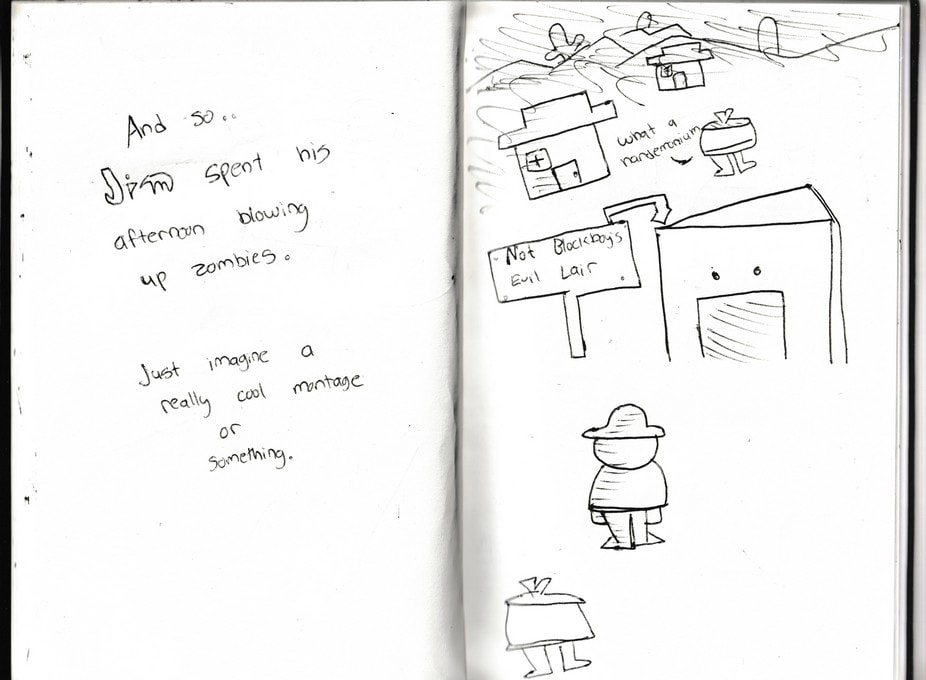 And so..
Jim spent his
afternoon blowing
up zombies.
Just imagine a
really cool montage
or
something.
What a
Not Blockboy's
Evil Lair